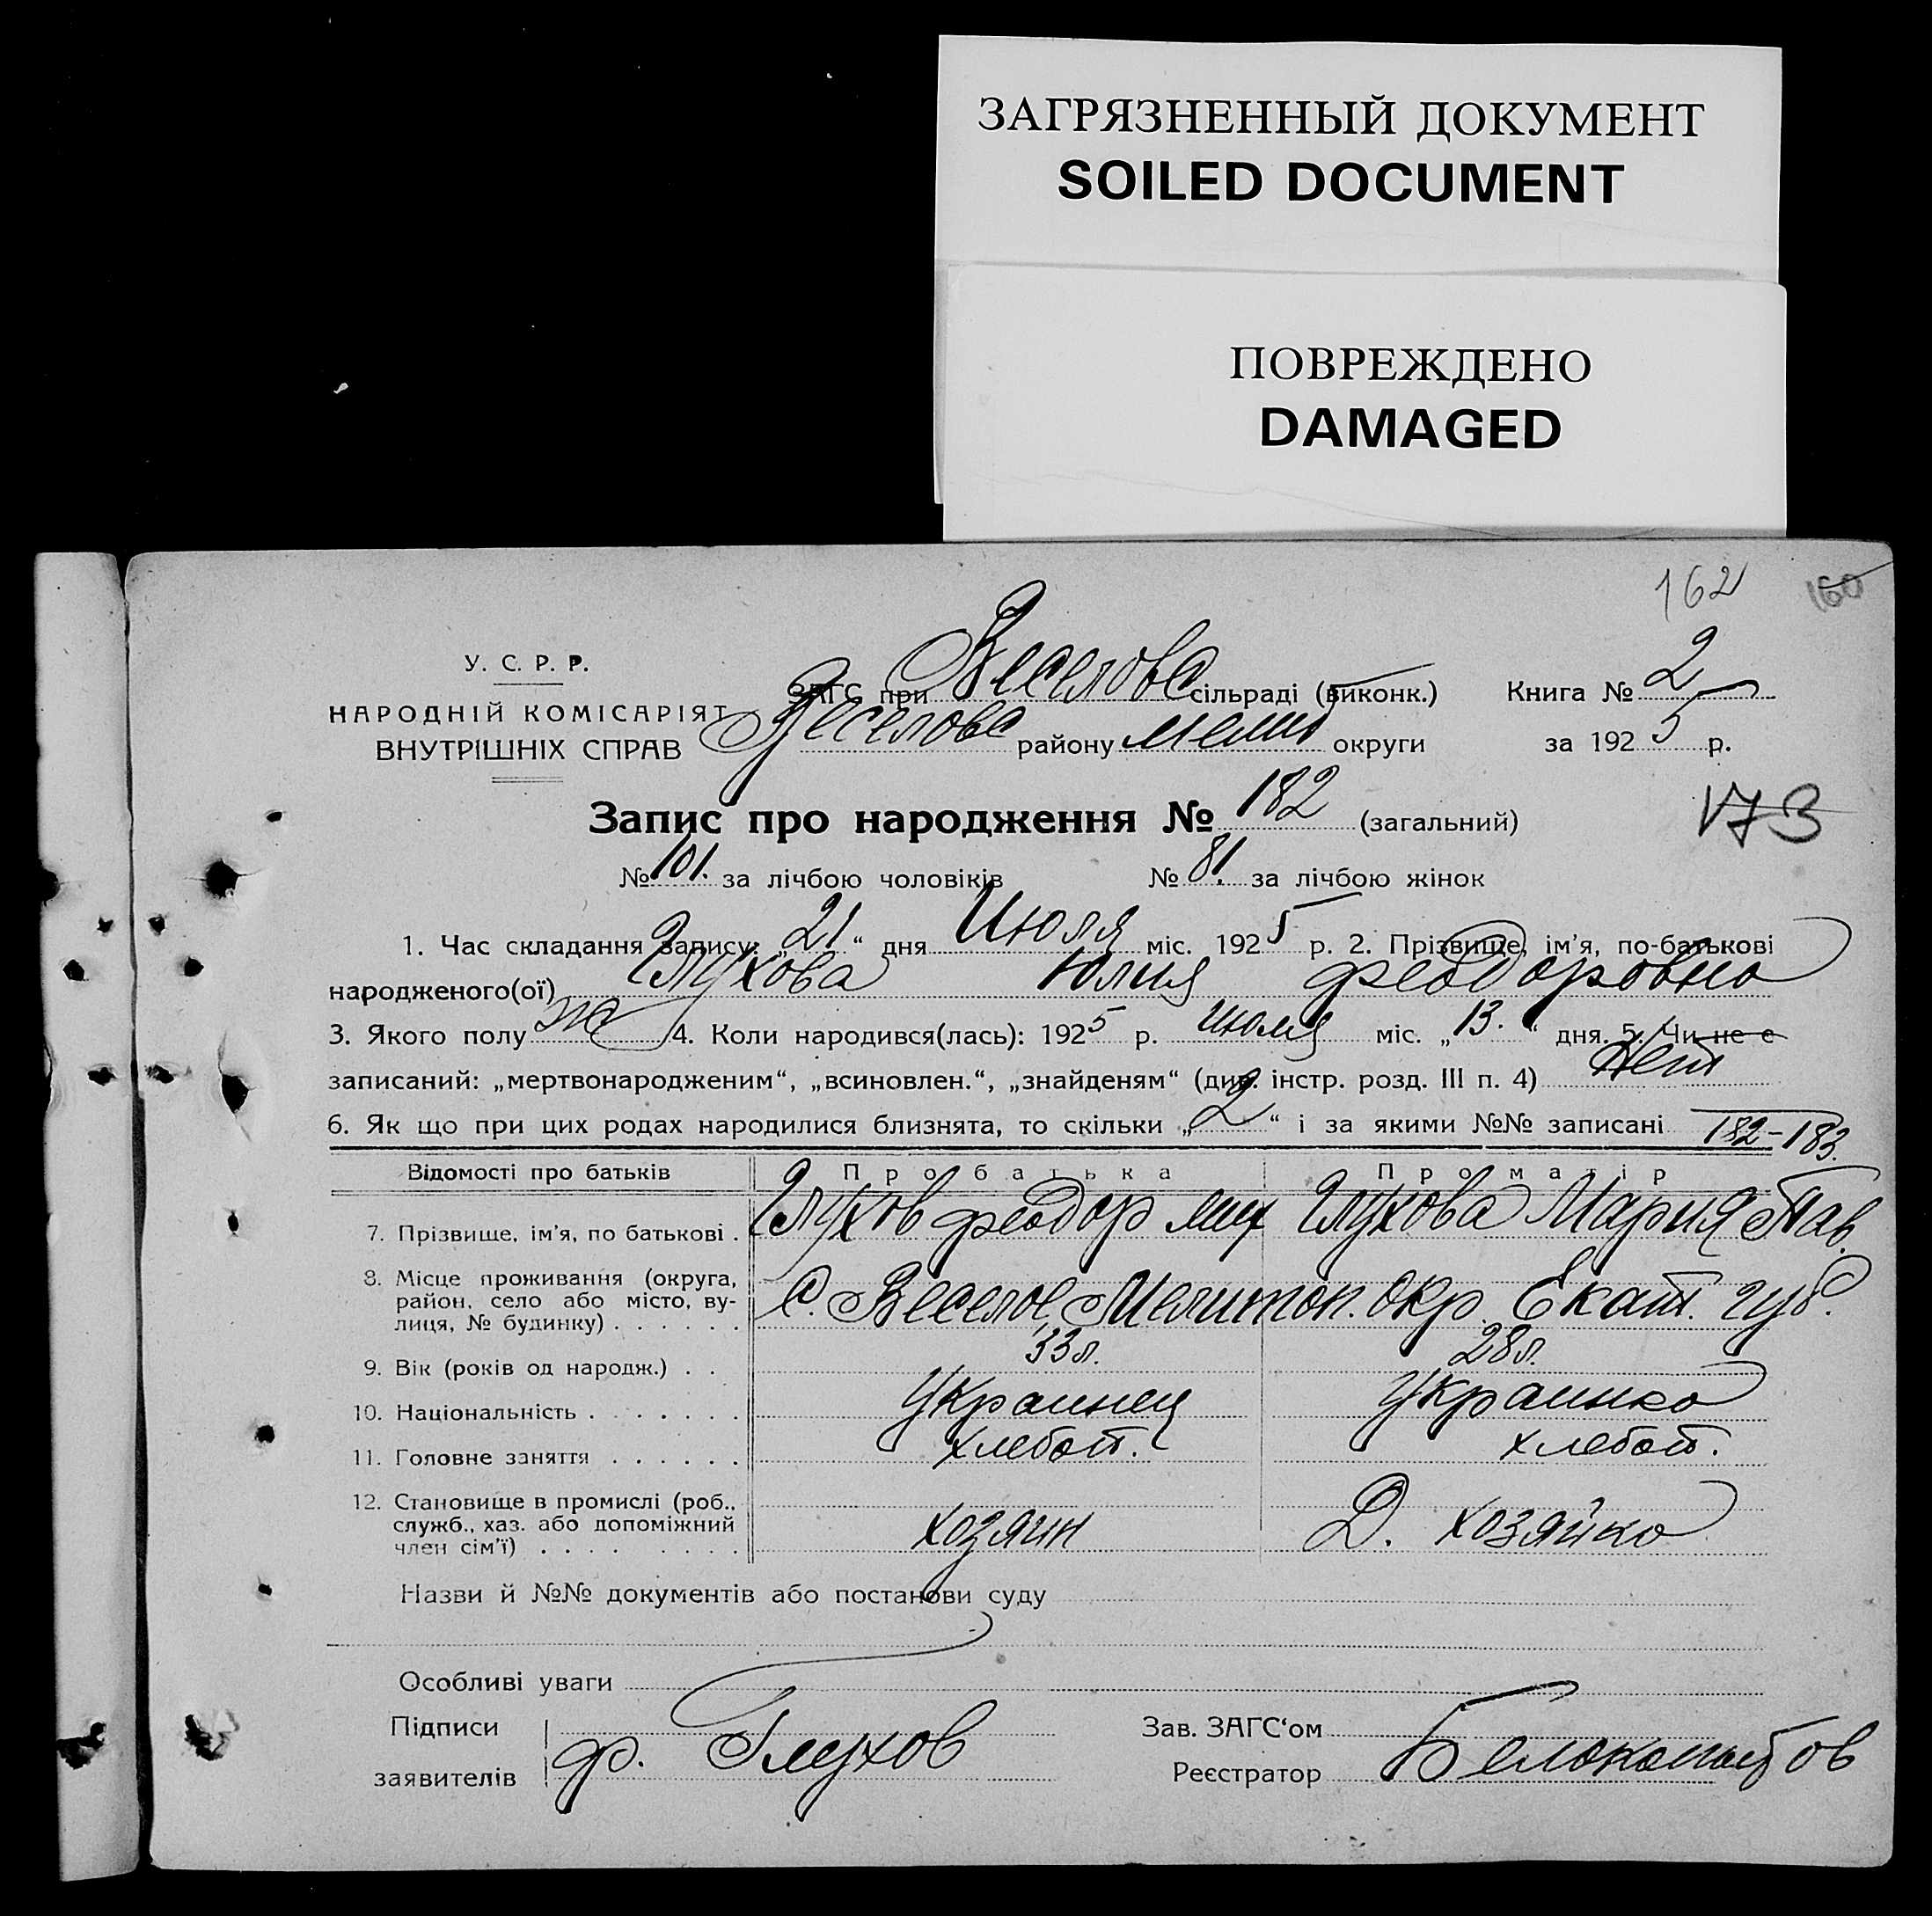 ЗАГРЯЗНЕННЫЙ ДОКУМЕНТ
SOILED DOCUMENT
ПОВРЕЖДЕНО
DAMAGED
162 160
У. С. Р. Р.
НАРОДНІЙ КОМІСАРІЯТ
ВНУТРІШНІХ СПРАВ
ЗАГС при Веселовс сільраді (виконк.) Книга № 2
Веселовс району Мелит округи за 1925 р.
Запис про народження № 182 (загальний)
173
№ 101. за лічбою чоловіків № 81. за лічбою жінок
1. Час складання запису: „21“ дня Июля міс. 1925 р. 2. Прізвище, ім’я, по-батькові
народженого(ої) Глухова Юлия Феодоровна
3. Якого полу ж 4. Коли народився(лась): 1925 р. Июля міс. „13.“ дня. 5. Чи не є
записаний: „мертвонародженим“, „всиновлен.“, „знайденям“ (див. інстр. розд. III п. 4) Нет
6. Як що при цих родах народилися близнята, то скільки „2“ і за якими №№ записані 182-183.
Відомості про батьків Про батька Про матір
7. Прізвище, ім’я, по батькові . Глухов Феодор Мих Глухова Мария Пав.
8. Місце проживання (округа,
район, село або місто, ву-
лиця, № будинку) . . . . . . С. Веселое Мелитоп. Окр. Екат. губ.
9. Вік (років од народж.) . . 33 л. 28 л.
10. Національність . . . . . . . Украинец Украинка
11. Головне заняття . . . . . . хлебоп. хлебоп.
12. Становище в промислі (роб.,
служб., хаз. або допоміжний
член сім’ї) . . . . . . . . хозяин Д. хозяйка
Назви й №№ документів або постанови суду
Особливі уваги
Підписи
заявителів Ф. Глухов
Зав. ЗАГС‘ом
Реєстратор Белокопытов